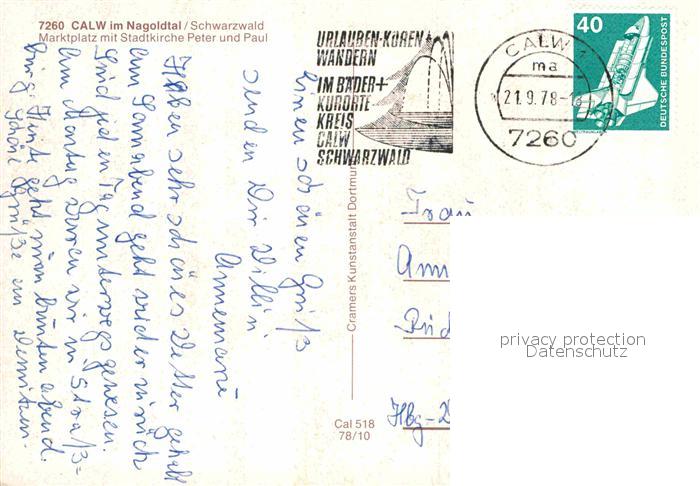 7260 CALW im Nagoldtal / Schwarzwald
Marktplatz mit Stadtkirche Peter und Paul
URLAUBEN-KUREN
WANDERN
IM BÄDER+
KURORTE-
KREIS
CALW
SCHWARZWALD
CALW 1
ma
21.9.78-18
7260
40
DEUTSCHE BUNDESPOST
Einen schönen Gruß
senden Dir Willi
Annemarie
Haben sehr schönes Wetter gehabt
am Sonnabend geht wider zurück
Sind jeden Tag unterwegs gewesen.
Am Montag waren wir in Straß=
burg Heute geht zum bunten abend.
schöne Grüße an
Frau
Ann
Rüd
Hbg-
Cramers Kunstanstalt Dortmun
Cal 518
78/10
privacy protection
Datenschutz